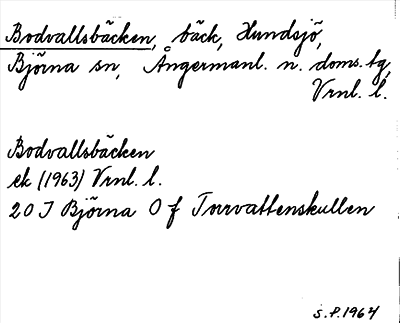 Bodvallsbäcken, bäck, Hundsjö,
Björna sn, Ångermanl. n. doms. tg,
Vrnl. l.
Bodvallsbäcken
ek (1963) Vrnl. l.
20 I Björna O f Torrvattenskullen
S.P. 1964